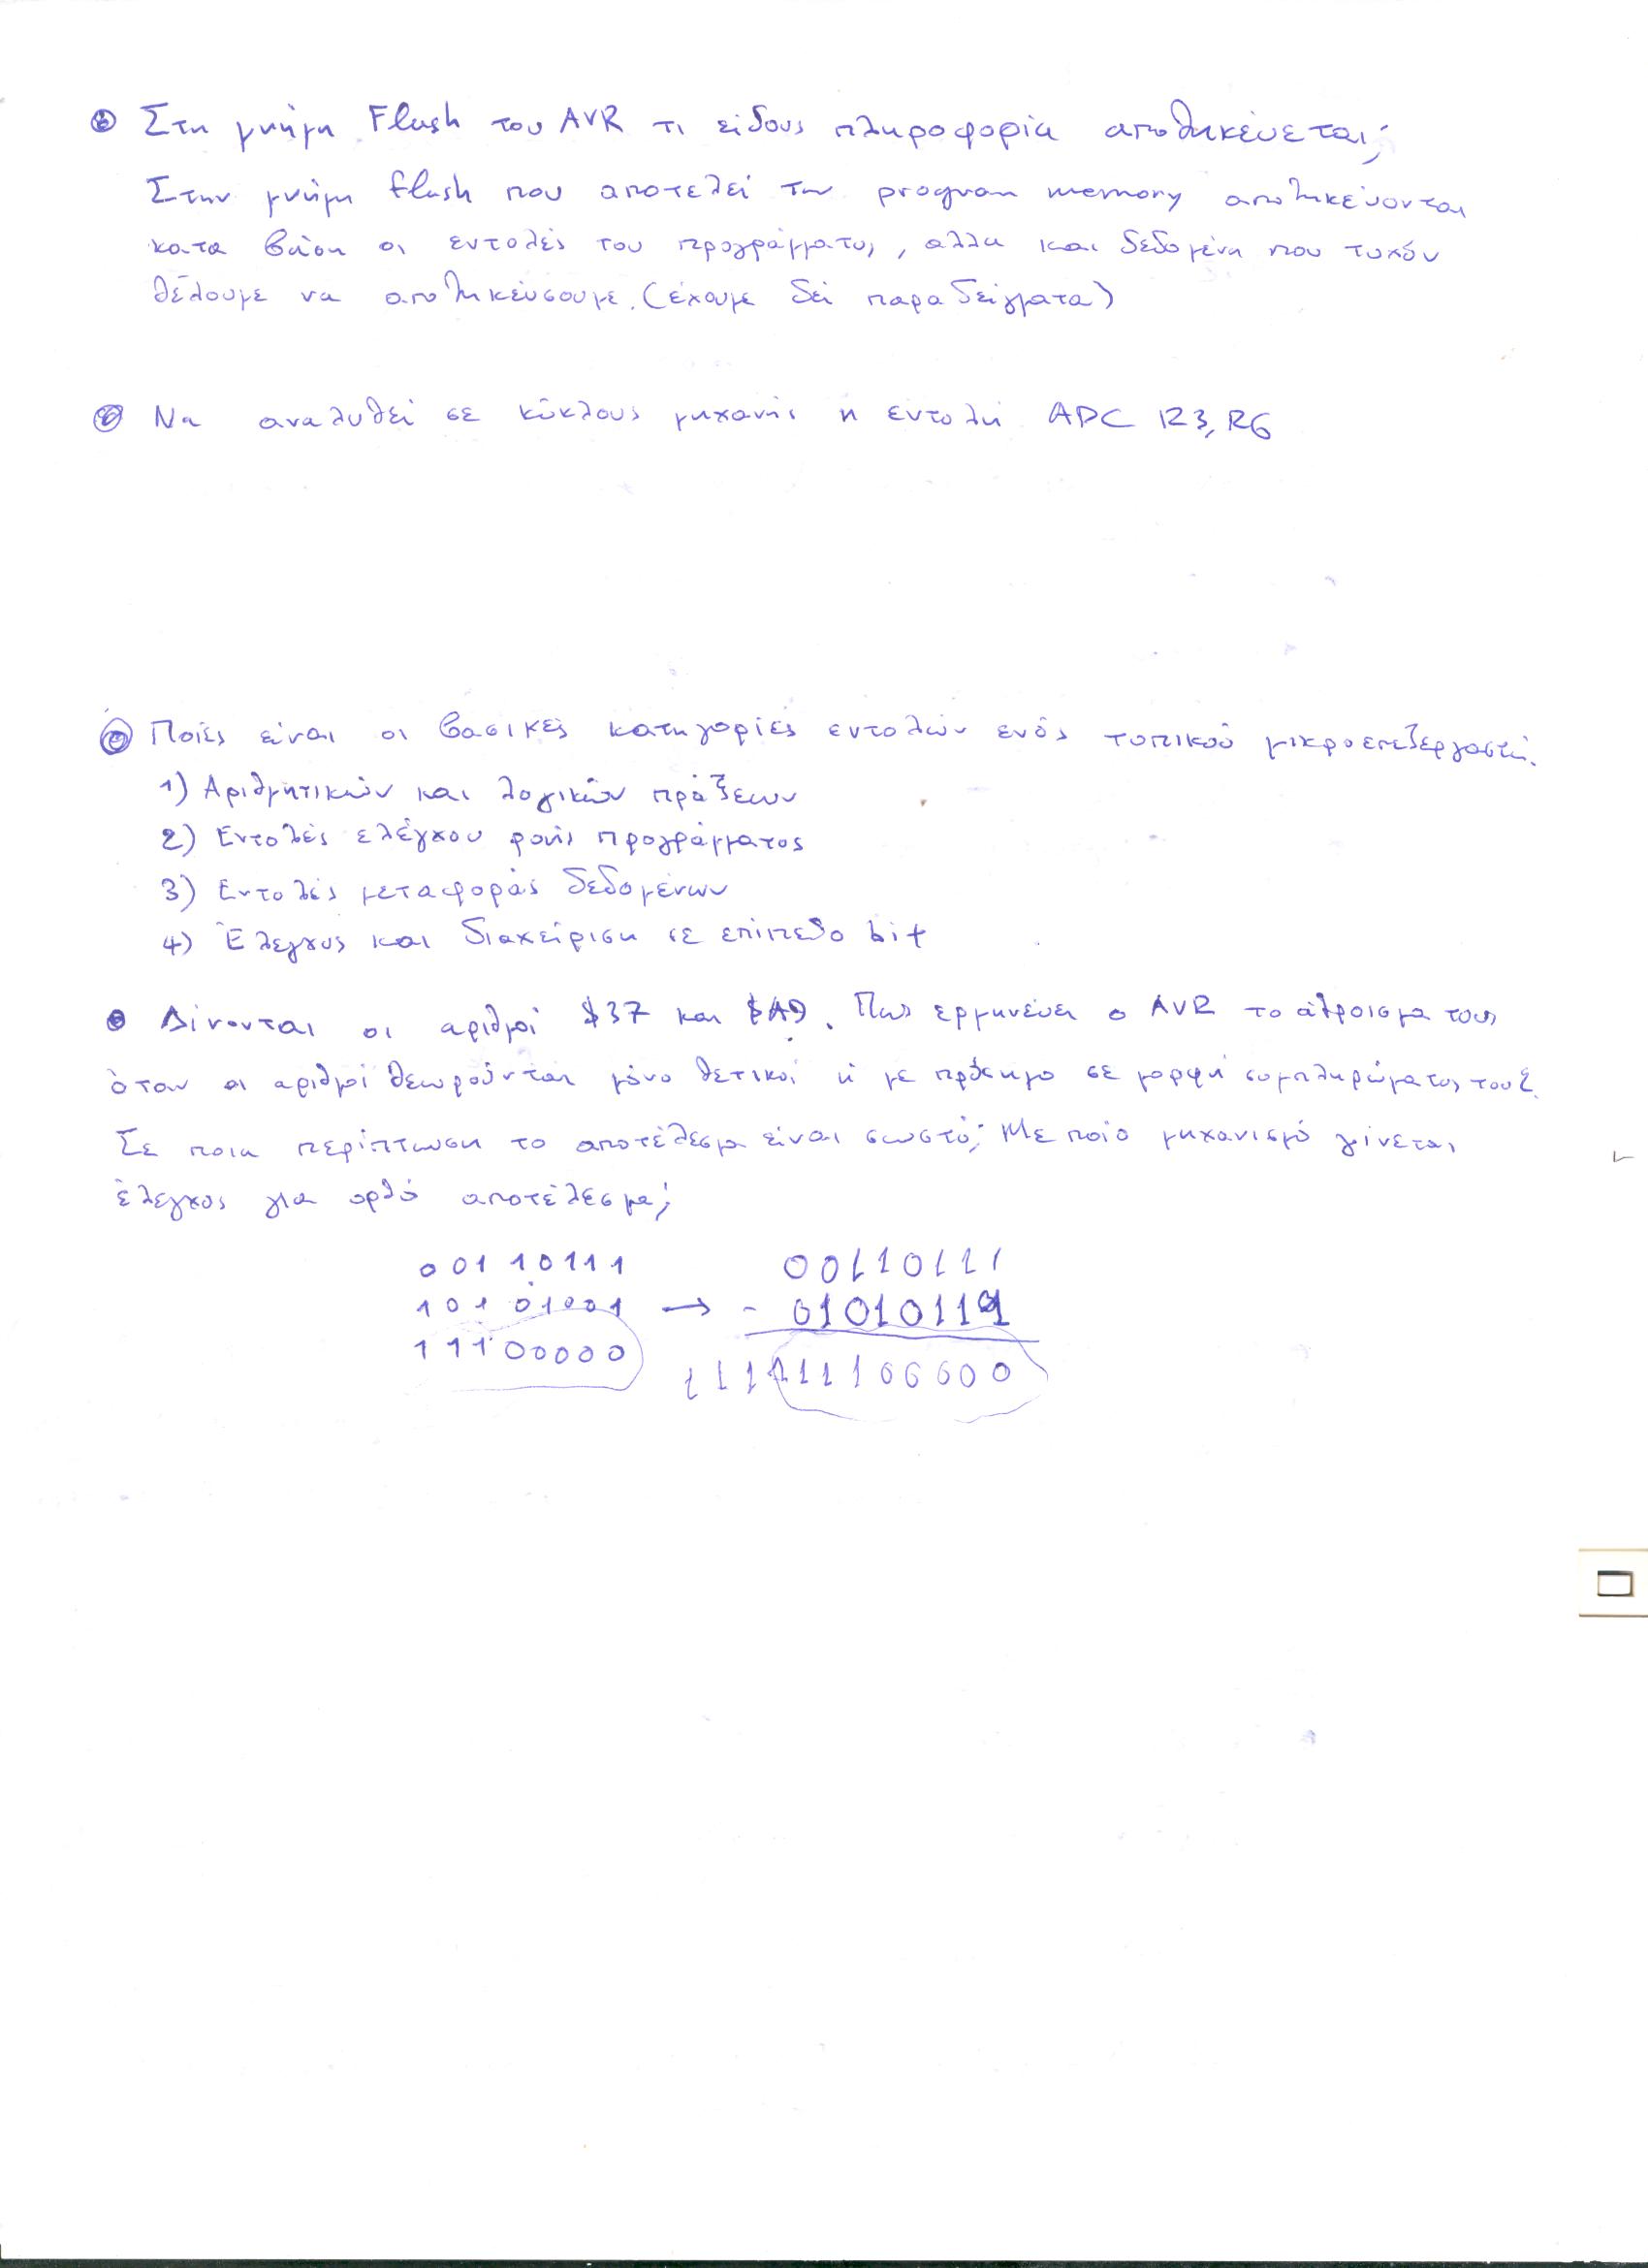 Στη μνήμη Flash του AVR τι είδους πληροφορία αποθηκεύεται;
Στην μνήμη flash που αποτελεί την program memory αποθηκεύονται
κατα βάση οι εντολές του προγράμματος, αλλα και δεδομένα που τυχόν
θέλουμε να αποθηκεύσουμε. (έχουμε δεί παραδείγματα)
Να αναλυθεί σε κύκλους μηχανής η εντολή ADC R3, R6
Ποιές είναι οι βασικές κατηγορίες εντολών ενός τυπικού μικροεπεξεργαστή.
1) Αριθμητικών και λογικών πράξεων
2) Εντολές ελέγχου ροής προγράμματος
3) Εντολές μεταφοράς δεδομένων
4) Έλεγχος και διαχείριση σε επίπεδο bit
Δίνονται οι αριθμοί $37 και $A9. Πως ερμηνεύει ο AVR το άθροισμα τους
όταν οι αριθμοί θεωρούνται μόνο θετικοί ή με πρόσημο σε μορφή συμπληρώματος του 2.
Σε ποια περίπτωση το αποτέλεσμα είναι σωστό; Με ποίο μηχανισμό γίνεται
έλεγχος για ορθό αποτέλεσμα;
00110111 00110111
10101001 → - 01010111
11100000 11111100000